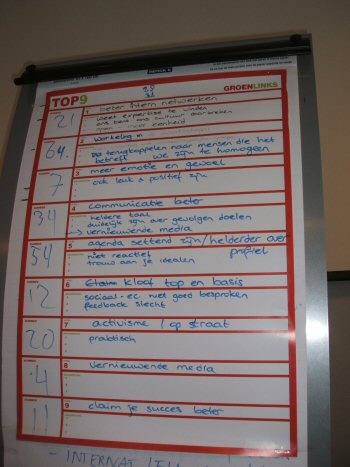 TOP9
GROENLINKS
21
1 beter intern netwerken
weet expertise te vinden
ons
open voor eenheid
64.
2 Werkelijk in
terugkoppelen naar mensen die het
betreft we zijn te homogeen
7
3 meer emotie en gevoel
ook leuk & positief zijn
34
4 communicatie beter
heldere taal
duidelijk zijn over gevolgen doelen
→ vernieuwende media
54
5 agenda settend zijn / helderder over
profiel
niet reactief
trouw aan je idealen
12
6 kloof top en basis
sociaal-ec niet goed besproken
feedback slecht
20
7 activisme / op straat
praktisch
4
8 vernieuwende media
11
9 claim je succes beter